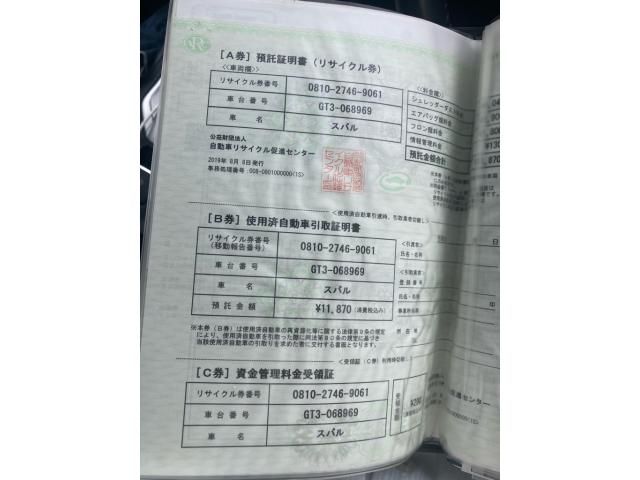 [A券] 預託証明書 (リサイクル券)
<<車両欄>>
リサイクル券番号 0810-2746-9061
車台番号 GT3-068969
車名 スバル
<<料金欄>>
シュレッダーダスト料金
エアバッグ類料金
フロン類料金
情報管理料金
預託金額合計
公益財団法人
自動車リサイクル促進センター
2019年 8月 8日発行
事務処理番号:008-0801000000(1S)
<使用済自動車引渡時、引取業者切離し>
[B券] 使用済自動車引取証明書
リサイクル券番号
(移動報告番号) 0810-2746-9061
車台番号 GT3-068969
車名 スバル
預託金額 ¥11,870 (消費税込み)
氏名・名称
登録番号
氏名・名称
事業所名称
所在地
※本券 (B券) は使用済自動車の再資源化等に関する法律第9条の規定
により、使用済自動車を引取った際に同法第80条の規定に基づき
当該使用済自動車の引取りを求めた者に交付する書面となります。
[C券] 資金管理料金受領証
リサイクル券番号 0810-2746-9061
車台番号 GT3-068969
車名 スバル
受領金額